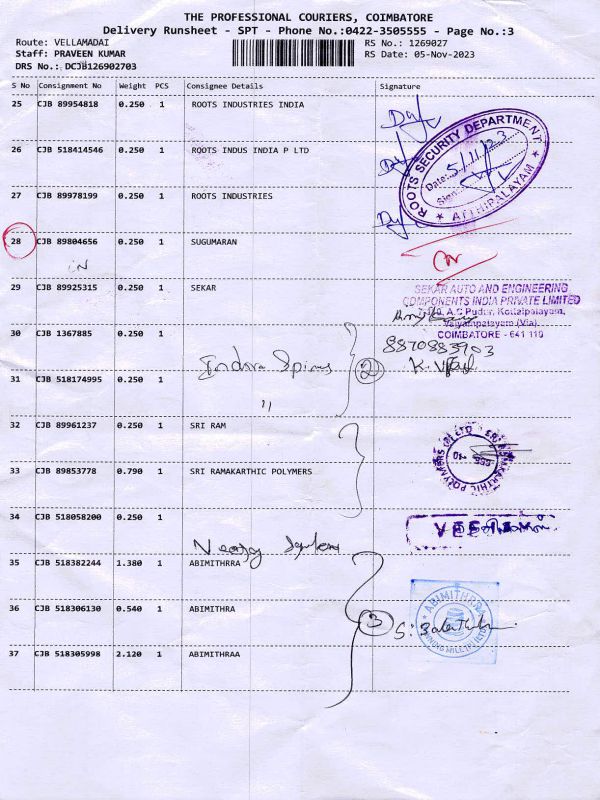 THE PROFESSIONAL COURIERS, COIMBATORE
Delivery Runsheet - SPT - Phone No.:0422-3505555 - Page No.:3
Route: VELLAMADAI RS No.: 1269027
Staff: PRAVEEN KUMAR RS Date: 05-Nov-2023
DRS No.: DCJB126902703
S No Consignment No Weight PCS Consignee Details Signature
25 CJB 89954818 0.250 1 ROOTS INDUSTRIES INDIA
26 CJB 518414546 0.250 1 ROOTS INDUS INDIA P LTD
ROOTS SECURITY DEPARTMENT
Date: 5/11/23
Sign:
ATHIPALAYAM
27 CJB 89978199 0.250 1 ROOTS INDUSTRIES
28 CJB 89804656 0.250 1 SUGUMARAN
IN
29 CJB 89925315 0.250 1 SEKAR
SEKAR AUTO AND ENGINEERING
COMPONENTS INDIA PRIVATE LIMITED
A.C Pudur, Kottaipalayam,
Vaiyampalayam (Via).
COIMBATORE - 641 110
30 CJB 1367885 0.250 1
8870883903
Indira Spinns 2
31 CJB 518174995 0.250 1
"
32 CJB 89961237 0.250 1 SRI RAM
33 CJB 89853778 0.790 1 SRI RAMAKARTHIC POLYMERS
SRI RAMAKARTHIC POLYMERS (P) LTD
34 CJB 518058200 0.250 1
35 CJB 518382244 1.380 1 ABIMITHRRA
36 CJB 518306130 0.540 1 ABIMITHRA
3
ABIMITHRRA
37 CJB 518305998 2.120 1 ABIMITHRAA